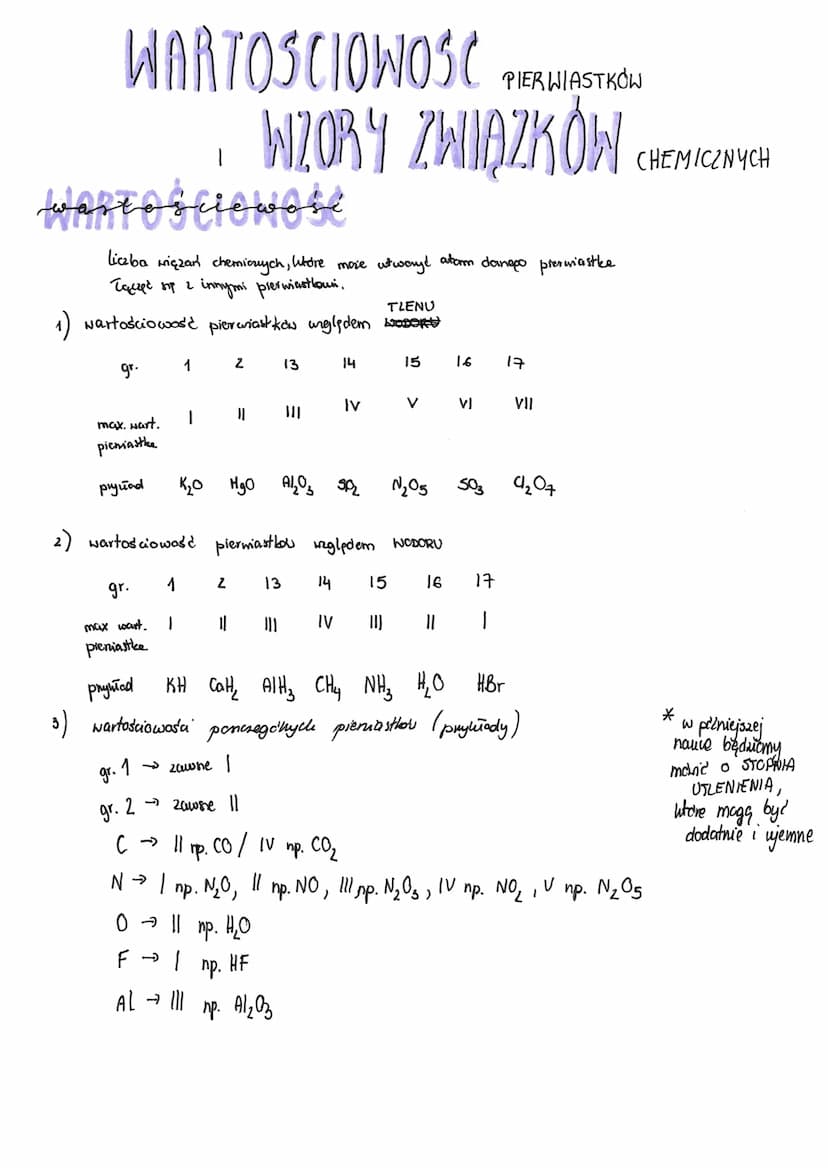 WARTOŚCIOWOŚĆ PIERWIASTKÓW
I WZORY ZWIĄZKÓW CHEMICZNYCH
WARTOŚCIOWOŚĆ
wartościowość
liczba wiązań chemicznych, które może utworzyć atom danego pierwiastka
łącząc się z innymi pierwiastkami.
TLENU
1) wartościowość pierwiastków względem WODORU
gr. 1 2 13 14 15 16 17
max. wart. I II III IV V VI VII
pierwiastka
przykład K₂O MgO Al₂O₃ SO₂ N₂O₅ SO₃ Cl₂O₇
2) wartościowość pierwiastków względem WODORU
gr. 1 2 13 14 15 16 17
max wart. I II III IV III II I
pierwiastka
przykład KH CaH₂ AlH₃ CH₄ NH₃ H₂O HBr
3) wartościowości poszczególnych pierwiastków (przykłady)
gr. 1 → zawsze I
gr. 2 → zawsze II
C → II np. CO / IV np. CO₂
N → I np. N₂O, II np. NO, III np. N₂O₃, IV np. NO₂, V np. N₂O₅
O → II np. H₂O
F → I np. HF
Al → III np. Al₂O₃
* w późniejszej
nauce będziemy
mówić o STOPNIA
UTLENIENIA,
które mogą być
dodatnie i ujemne